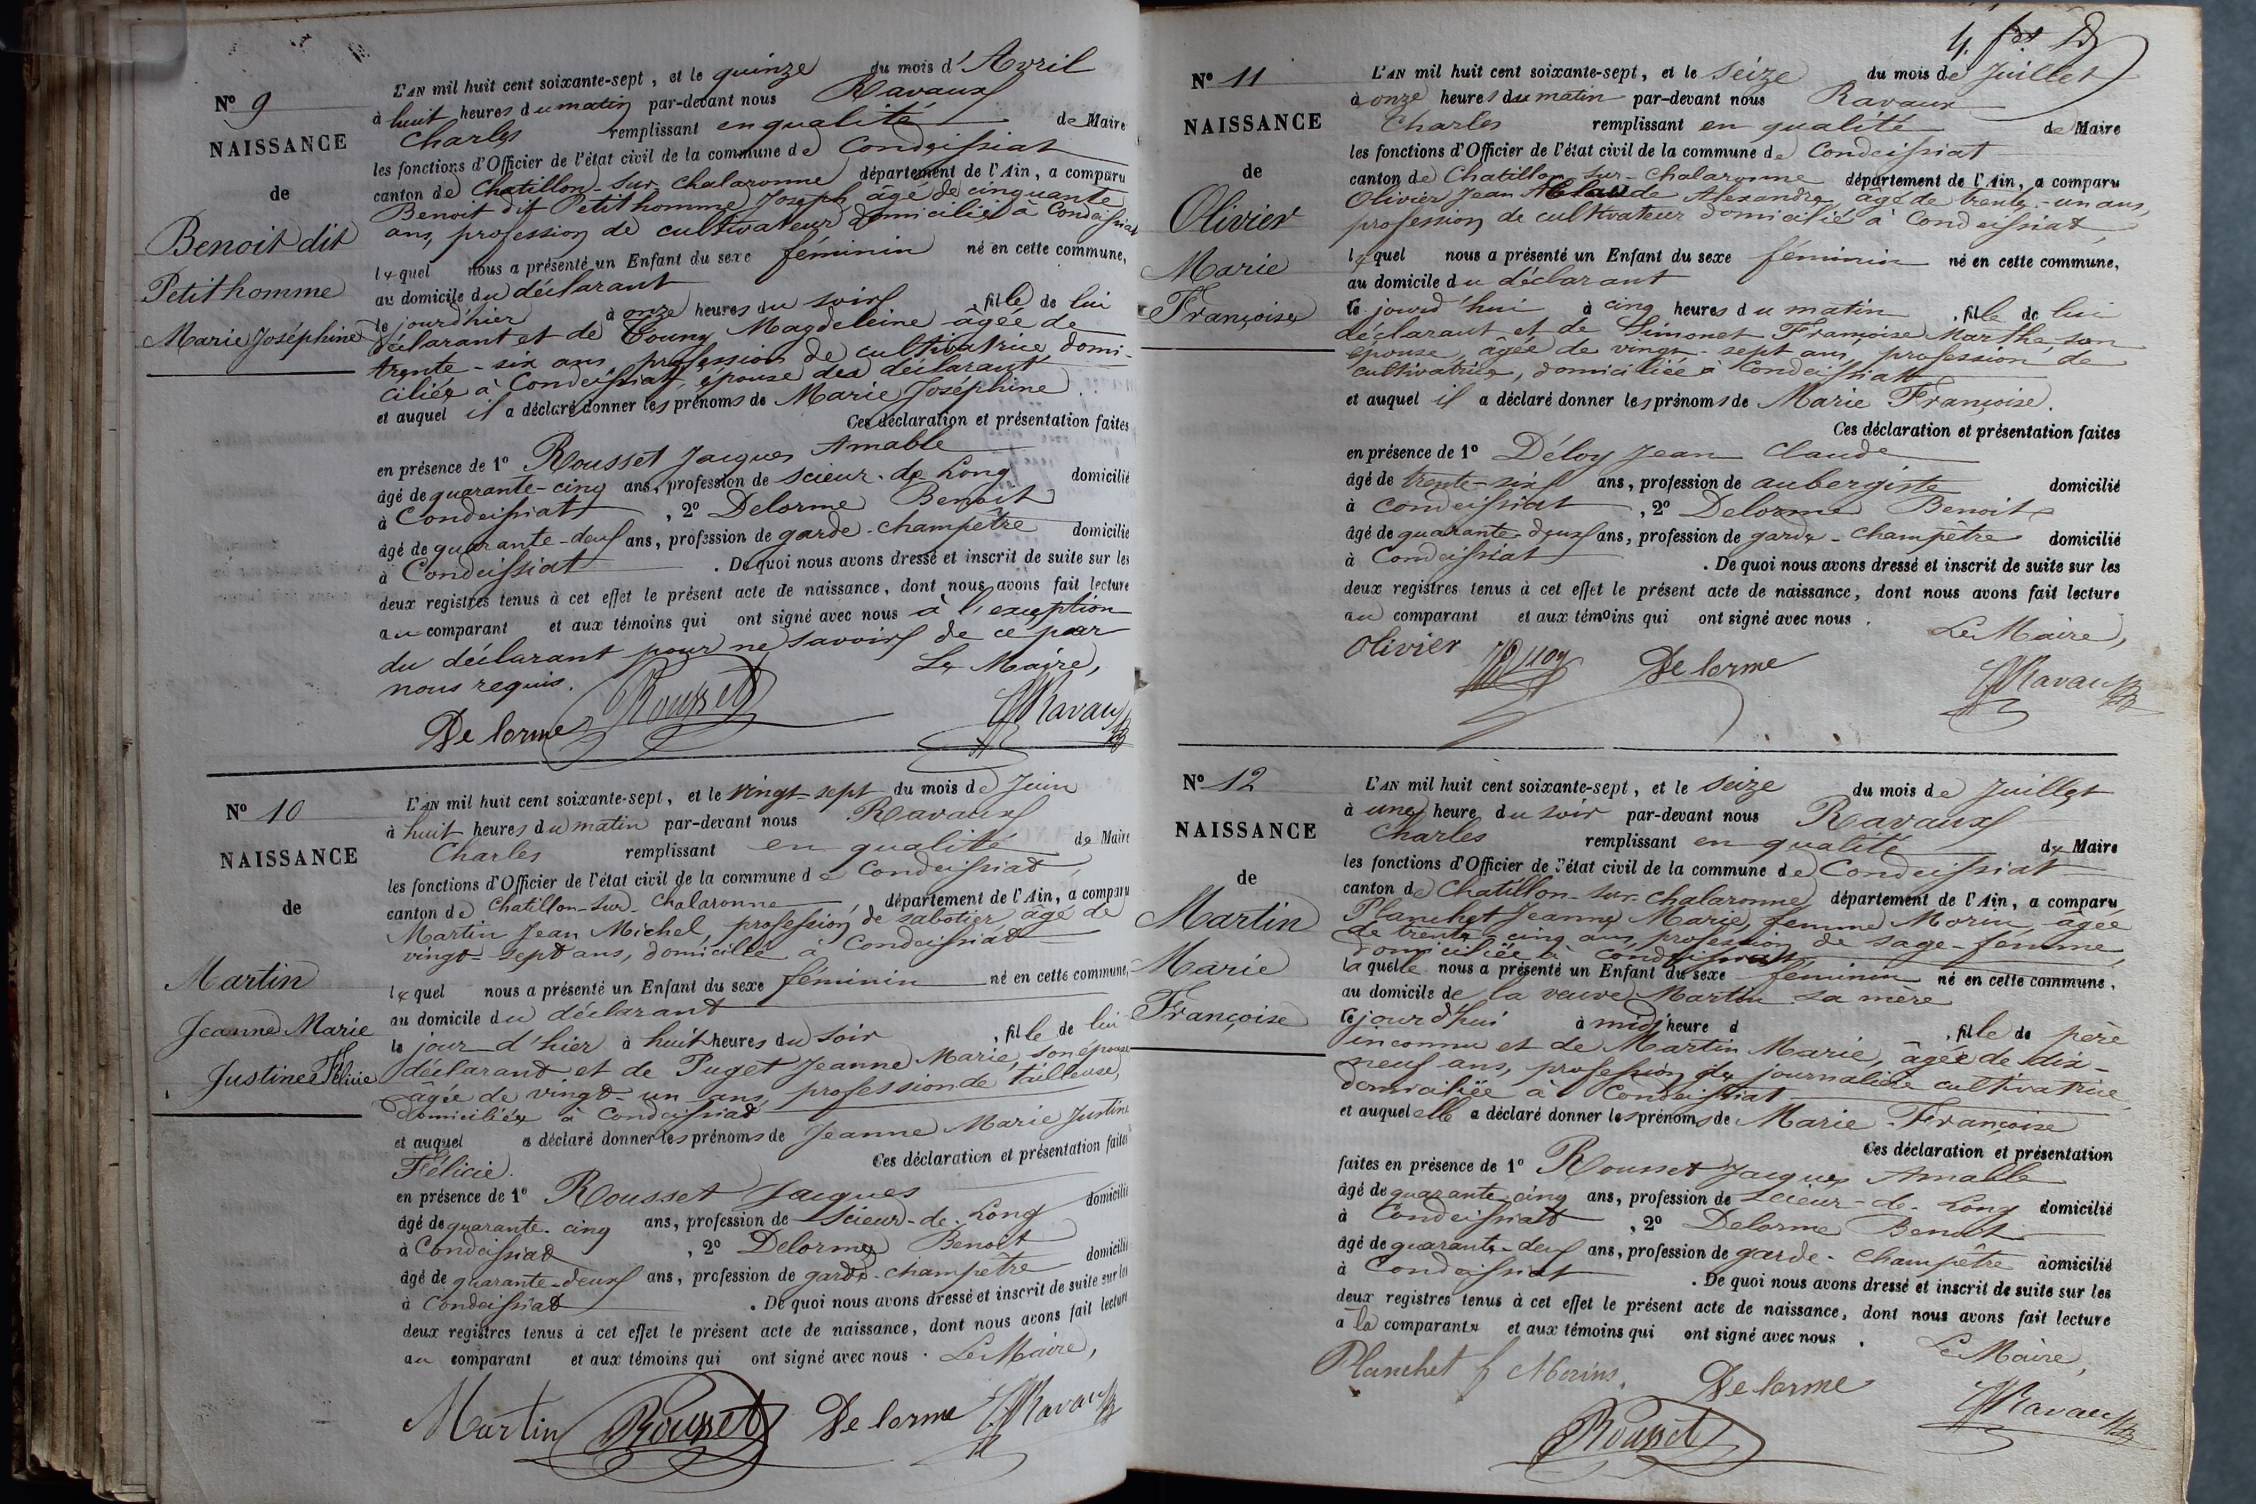 Nº 9
NAISSANCE
de
Benoit dit
Petit homme
Marie Joséphine
L'AN mil huit cent soixante-sept, et le quinze du mois d'Avril
à huit heures du matin par-devant nous Ravaux
Charles remplissant en qualité de Maire
les fonctions d'Officier de l'état civil de la commune de Condeissiat
canton de Chatillon-sur-Chalaronne département de l'Ain, a comparu
Benoit dit Petit homme Joseph, âgé de cinquante
ans, profession de cultivateur domicilié à Condeissiat
lequel nous a présenté un Enfant du sexe féminin né en cette commune,
au domicile du déclarant
le jourd'hier à onze heures du soir, fille de lui
déclarant et de Magdeleine âgée de
trente-six ans, profession de cultivatrice, domi-
ciliée à Condeissiat, épouse du déclarant
et auquel il a déclaré donner les prénoms de Marie Joséphine.
Ces déclaration et présentation faites
en présence de 1º Rousset Jacques Amable
âgé de quarante-cinq ans, profession de scieur-de-Long domicilié
à Condeissiat, 2º Delorme Benoit
âgé de quarante-deux ans, profession de garde-champêtre domicilié
à Condeissiat. De quoi nous avons dressé et inscrit de suite sur les
deux registres tenus à cet effet le présent acte de naissance, dont nous avons fait lecture
au comparant et aux témoins qui ont signé avec nous à l'exception
du déclarant pour ne savoir de ce par
nous requis. Le Maire,
Delorme Rousset Ravaux
Nº 10
NAISSANCE
de
Martin
Jeanne Marie
Justine Félicie
L'AN mil huit cent soixante-sept, et le vingt-sept du mois de Juin
à huit heures du matin par-devant nous Ravaux
Charles remplissant en qualité de Maire
les fonctions d'Officier de l'état civil de la commune de Condeissiat
canton de Chatillon-sur-Chalaronne, département de l'Ain, a comparu
Martin Jean Michel, profession de sabotier, âgé de
vingt-sept ans, domicilié à Condeissiat
lequel nous a présenté un Enfant du sexe féminin né en cette commune,
au domicile du déclarant
le jour d'hier à huit heures du soir, fille de lui
déclarant et de Puget Jeanne Marie, son épouse
âgée de vingt-un ans, profession de tailleuse,
domiciliée à Condeissiat
et auquel a déclaré donner les prénoms de Jeanne Marie Justine
Félicie. Ces déclaration et présentation faites
en présence de 1º Rousset Jacques
âgé de quarante-cinq ans, profession de Scieur-de-Long domicilié
à Condeissiat, 2º Delorme Benoit
âgé de quarante-deux ans, profession de garde-champêtre domicilié
à Condeissiat. De quoi nous avons dressé et inscrit de suite sur les
deux registres tenus à cet effet le présent acte de naissance, dont nous avons fait lecture
au comparant et aux témoins qui ont signé avec nous. Le Maire,
Martin Rousset Delorme Ravaux
Nº 11
NAISSANCE
de
Olivier
Marie
Françoise
L'AN mil huit cent soixante-sept, et le seize du mois de Juillet
à onze heures du matin par-devant nous Ravaux
Charles remplissant en qualité de Maire
les fonctions d'Officier de l'état civil de la commune de Condeissiat
canton de Chatillon-sur-Chalaronne département de l'Ain, a comparu
Olivier Jean Alexandre, âgé de trente-un ans,
profession de cultivateur domicilié à Condeissiat,
lequel nous a présenté un Enfant du sexe féminin né en cette commune,
au domicile du déclarant
le jourd'hui à cinq heures du matin, fille de lui
déclarant et de Limonet Françoise Marthe, son
épouse, âgée de vingt-sept ans, profession de
cultivatrice, domiciliée à Condeissiat
et auquel il a déclaré donner les prénoms de Marie Françoise.
Ces déclaration et présentation faites
en présence de 1º Déloy Jean Claude
âgé de trente-six ans, profession de aubergiste domicilié
à Condeissiat, 2º Delorme Benoit
âgé de quarante-deux ans, profession de garde-champêtre domicilié
à Condeissiat. De quoi nous avons dressé et inscrit de suite sur les
deux registres tenus à cet effet le présent acte de naissance, dont nous avons fait lecture
au comparant et aux témoins qui ont signé avec nous. Le Maire,
Olivier Delorme Ravaux
Nº 12
NAISSANCE
de
Martin
Marie
Françoise
L'AN mil huit cent soixante-sept, et le seize du mois de Juillet
à une heure du soir par-devant nous Ravaux
Charles remplissant en qualité de Maire
les fonctions d'Officier de l'état civil de la commune de Condeissiat
canton de Chatillon-sur-Chalaronne département de l'Ain, a comparu
Planchet Jeanne Marie, femme Morin, âgée
de trente-cinq ans, profession de sage-femme,
domiciliée à Condeissiat
laquelle nous a présenté un Enfant du sexe féminin né en cette commune,
au domicile de la veuve Martin sa mère
le jourd'hui à midi heure d, fille de père
inconnu et de Martin Marie, âgée de dix-
neuf ans, profession de journalière cultivatrice
domiciliée à Condeissiat
et auquel elle a déclaré donner les prénoms de Marie Françoise
Ces déclaration et présentation
faites en présence de 1º Rousset Jacques Amable
âgé de quarante-cinq ans, profession de Scieur-de-Long domicilié
à Condeissiat, 2º Delorme Benoit
âgé de quarante-deux ans, profession de garde-champêtre domicilié
à Condeissiat. De quoi nous avons dressé et inscrit de suite sur les
deux registres tenus à cet effet le présent acte de naissance, dont nous avons fait lecture
a la comparante et aux témoins qui ont signé avec nous. Le Maire,
Planchet f Morins. Delorme Ravaux
Rousset